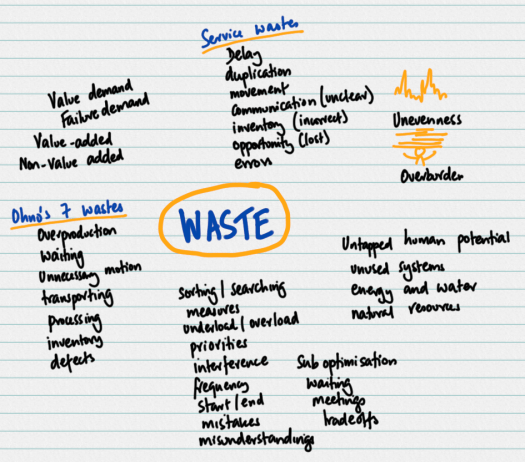 Service wastes
Delay
duplication
movement
communication (unclear)
inventory (incorrect)
opportunity (lost)
errors
Value demand
Failure demand
Value-added
Non-value added
Unevenness
Overburden
Ohno's 7 wastes
Overproduction
waiting
Unnecessary motion
transporting
processing
inventory
defects
WASTE
Untapped human potential
unused systems
energy and water
natural resources
Sorting / searching
measures
underload / overload
priorities
interference
frequency
start / end
mistakes
misunderstandings
Sub optimisation
waiting
meetings
tradeoffs